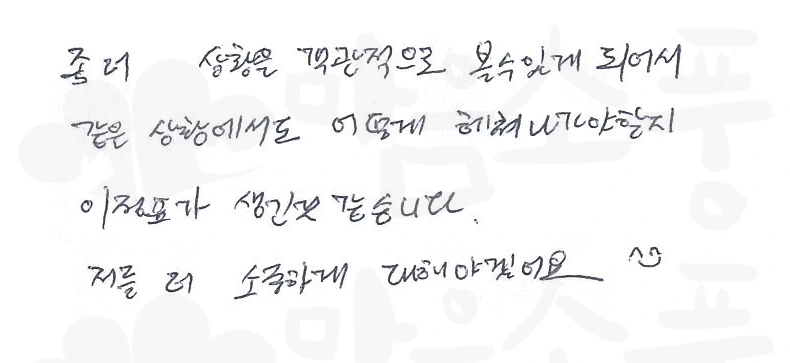 좀 더 상황을 객관적으로 볼수있게 되어서
같은 상황에서도 어떻게 헤쳐나가야할지
이정표가 생긴것 같습니다.
저를 더 소중하게 대해야겠어요 ^^
마음소통
마음소통